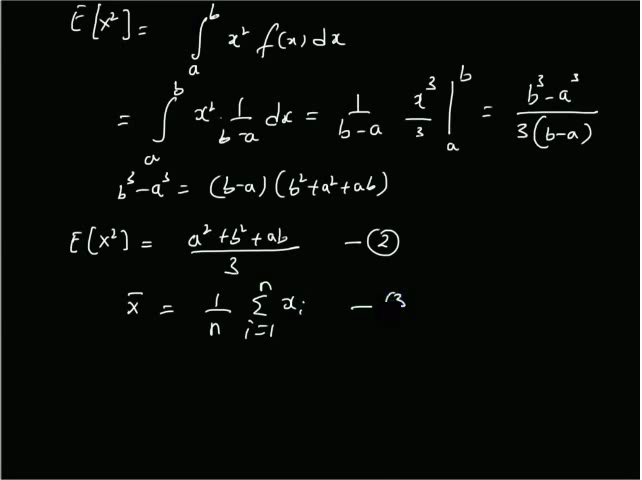 E[x²] = ∫ₐᵇ x² f(x) dx
= ∫ₐᵇ x² · 1/(b-a) dx = 1/(b-a) x³/3 |ₐᵇ = (b³-a³)/(3(b-a))
b³-a³ = (b-a)(b²+a²+ab)
E[x²] = (a²+b²+ab)/3 - ②
x̄ = 1/n Σᵢ₌₁ⁿ xᵢ - (3